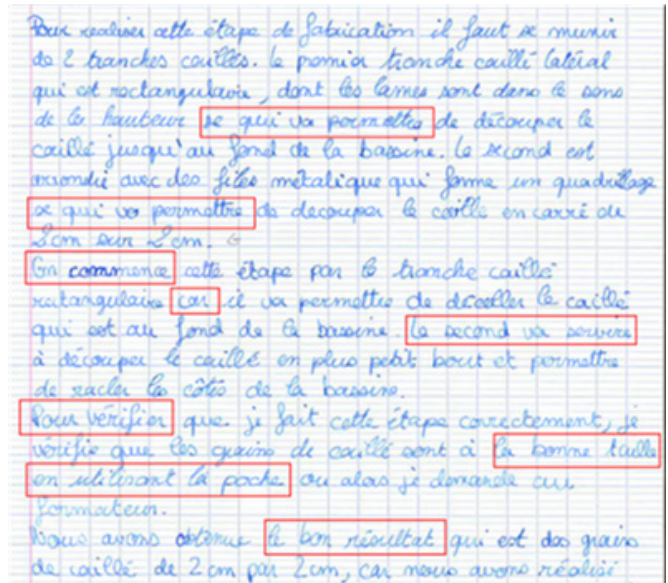 Pour realiser cette étape de fabrication il faut se munir
de 2 tranches caillés. Le premier tranche caillé latéral
qui est rectangulaire, dont les lames sont dans le sens
de la hauteur se qui va permettre de découper le
caillé jusqu'au fond de la bassine. Le second est
arrondie avec des files métalique qui forme un quadrillage
se qui va permettre de decouper le caille en carré de
2cm sur 2cm.
On commence cette étape par le tranche caillé
rectangulaire car il va permettre de décoller le caillé
qui est au fond de la bassine. Le second va servire
à découper le caillé en plus petit bout et permettre
de racler les côtés de la bassine.
Pour vérifier que je fait cette étape correctement, je
vérifie que les grains de caillé sont à la bonne taille
en utilisant la poche ou alors je demande au
formateur.
Nous avons obtenue le bon résultat qui est des grains
de caillé de 2 cm par 2cm, car nous avons réalisé